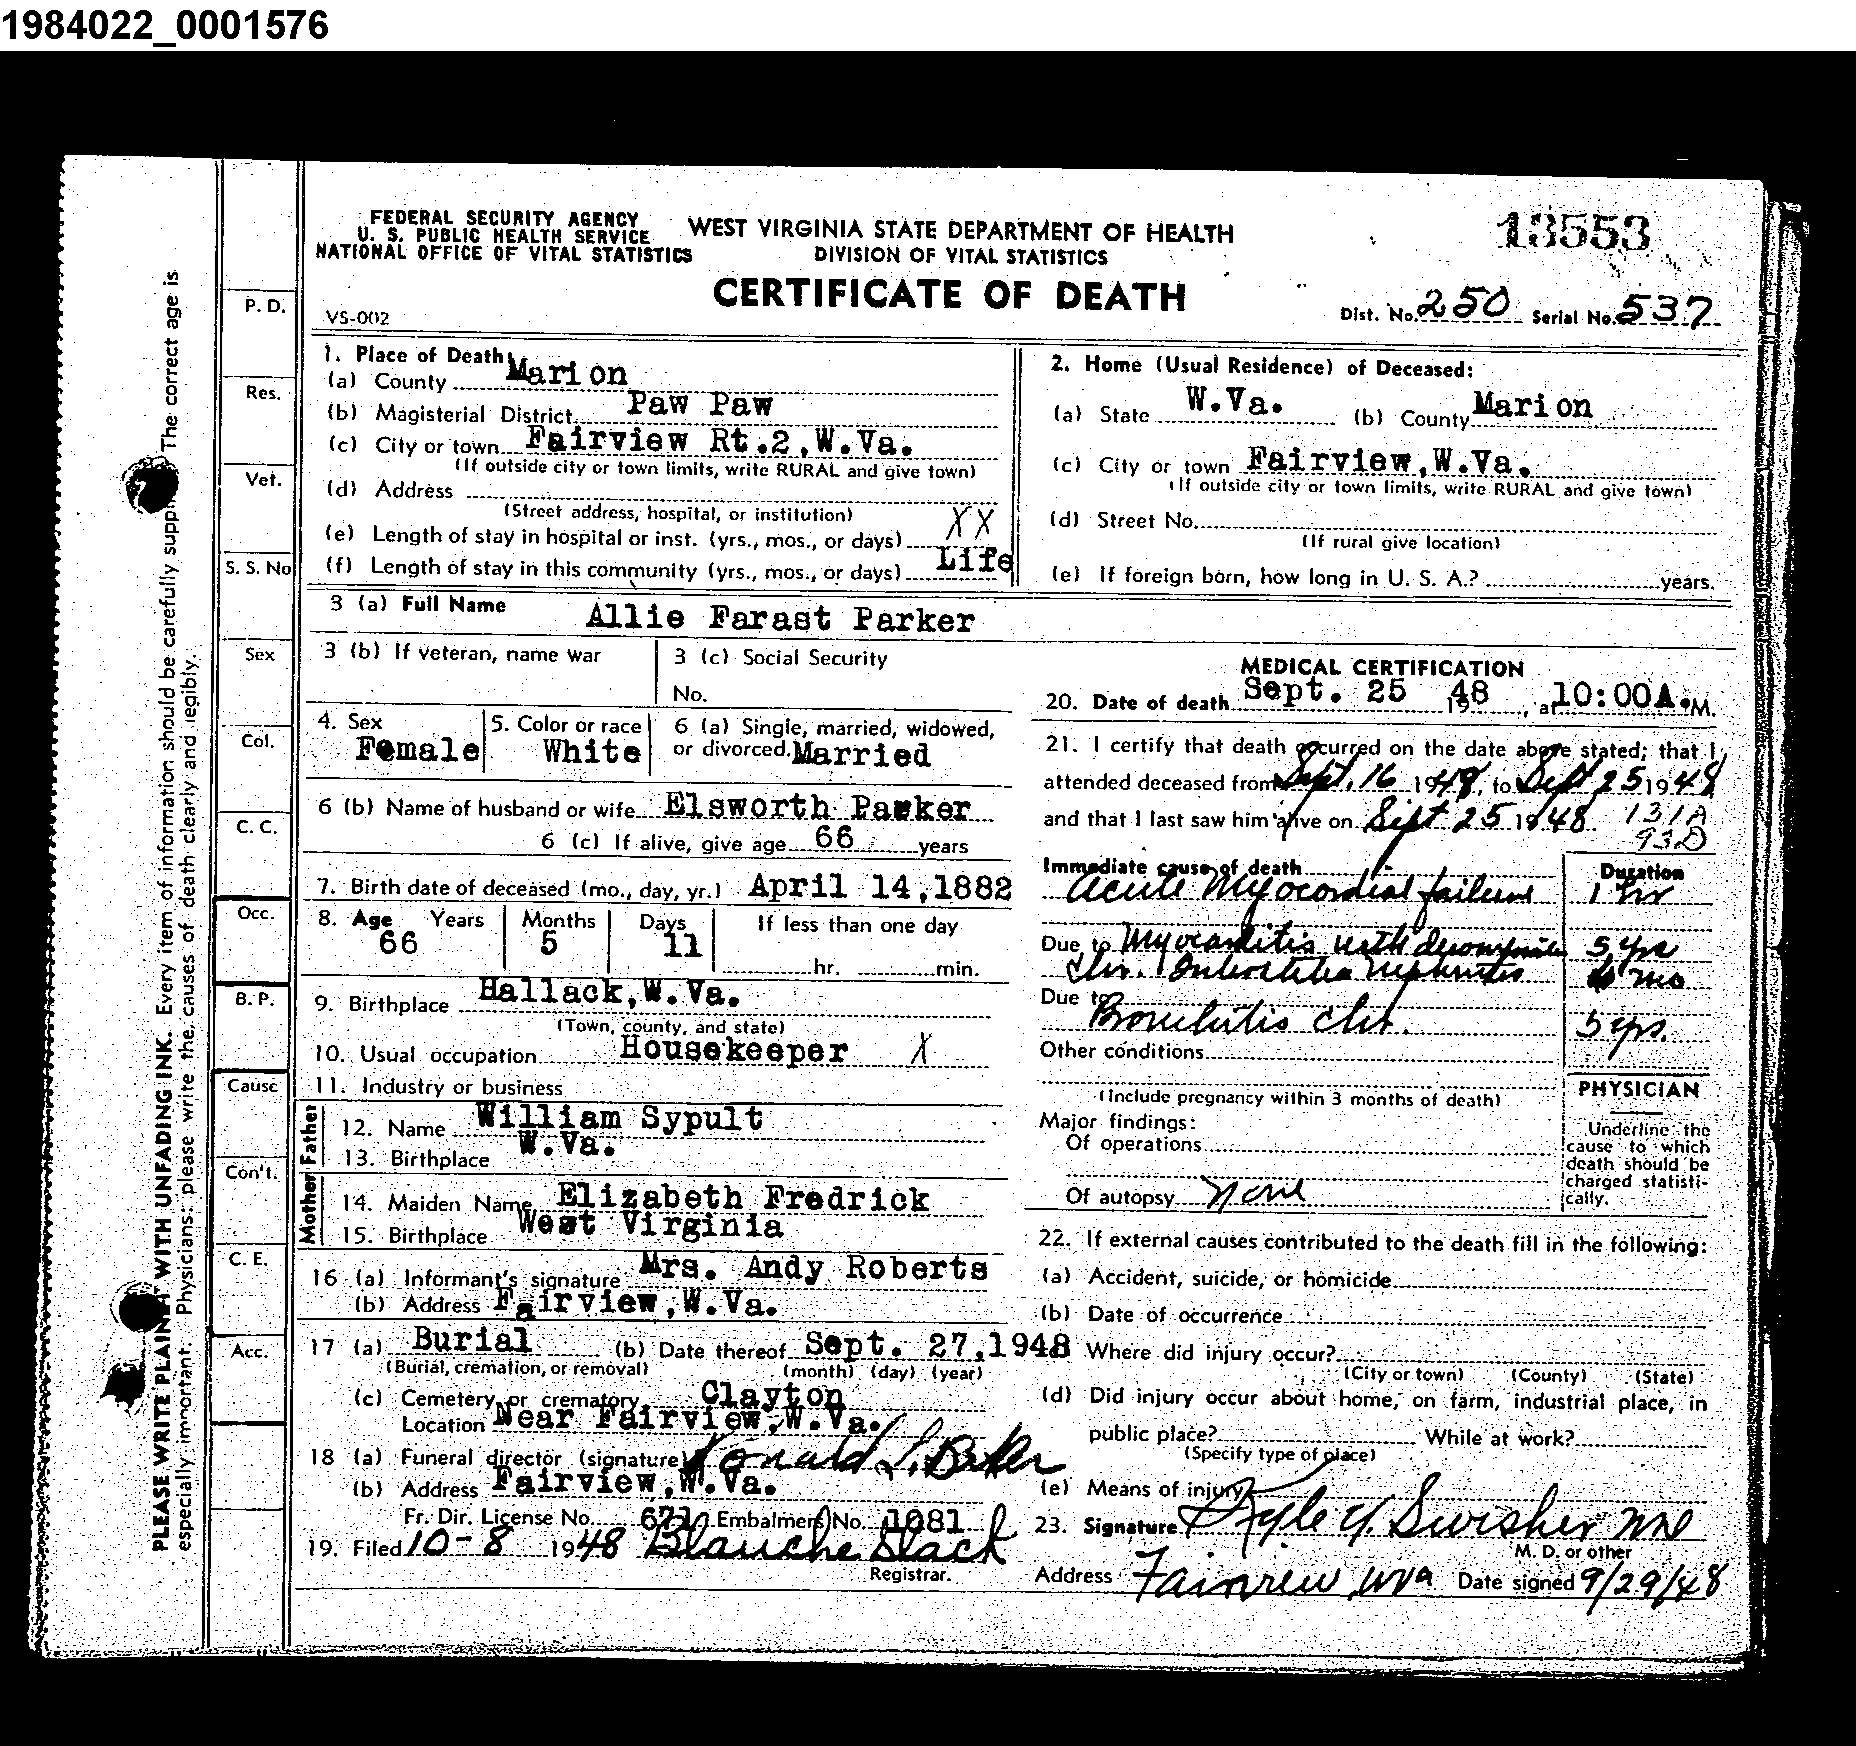 1984022_0001576
FEDERAL SECURITY AGENCY
U. S. PUBLIC HEALTH SERVICE
NATIONAL OFFICE OF VITAL STATISTICS
WEST VIRGINIA STATE DEPARTMENT OF HEALTH
DIVISION OF VITAL STATISTICS
CERTIFICATE OF DEATH
13553
VS-002
Dist. No. 250 Serial No. 537
1. Place of Death:
(a) County Marion
(b) Magisterial District Paw Paw
(c) City or town Fairview Rt.2,W.Va.
(If outside city or town limits, write RURAL and give town)
(d) Address
(Street address, hospital, or institution)
(e) Length of stay in hospital or inst. (yrs., mos., or days) XX
(f) Length of stay in this community (yrs., mos., or days) Life
2. Home (Usual Residence) of Deceased:
(a) State W.Va. (b) County Marion
(c) City or town Fairview,W.Va.
(If outside city or town limits, write RURAL and give town)
(d) Street No.
(If rural give location)
(e) If foreign born, how long in U. S. A.? years.
3 (a) Full Name Allie Farast Parker
3 (b) If veteran, name war
3 (c) Social Security
No.
4. Sex Female
5. Color or race White
6 (a) Single, married, widowed,
or divorced. Married
6 (b) Name of husband or wife Elsworth Parker
6 (c) If alive, give age 66 years
7. Birth date of deceased (mo., day, yr.) April 14,1882
8. Age Years Months Days If less than one day
66 5 11 hr. min.
9. Birthplace Hallack,W.Va.
(Town, county, and state)
10. Usual occupation Housekeeper X
11. Industry or business
Father
12. Name William Sypult
13. Birthplace W.Va.
Mother
14. Maiden Name Elizabeth Fredrick
15. Birthplace West Virginia
16 (a) Informant's signature Mrs. Andy Roberts
(b) Address Fairview,W.Va.
17 (a) Burial (b) Date thereof Sept. 27,1948
(Burial, cremation, or removal) (month) (day) (year)
(c) Cemetery or crematory Clayton
Location Near Fairview,W.Va.
18 (a) Funeral director (signature) Ronald L. Baker
(b) Address Fairview,W.Va.
Fr. Dir. License No. 671 Embalmers No. 1081
19. Filed 10-8 1948 Blanche Slack
Registrar.
MEDICAL CERTIFICATION
20. Date of death Sept. 25 1948, at 10:00A.M.
21. I certify that death occurred on the date above stated; that I
attended deceased from Sept. 16 1948, to Sept 25 1948
and that I last saw him alive on Sept 25 1948 131A
93D
Immediate cause of death Duration
Acute Myocordial failure 1 hr
Due to Myocarditis with 5 yrs
Chr. Interstitial Nephritis 6 mo
Due to
Bronchitis chr. 5 yrs.
Other conditions
(Include pregnancy within 3 months of death)
Major findings:
Of operations
Of autopsy None
PHYSICIAN
Underline the
cause to which
death should be
charged statisti-
cally.
22. If external causes contributed to the death fill in the following:
(a) Accident, suicide, or homicide
(b) Date of occurrence
Where did injury occur?
(City or town) (County) (State)
(d) Did injury occur about home, on farm, industrial place, in
public place? While at work?
(Specify type of place)
(e) Means of injury
23. Signature Swisher MD
M. D. or other
Address Fairview WVa Date signed 9/29/48
P. D.
Res.
Vet.
S. S. No
Sex
Col.
C. C.
Occ.
B. P.
Cause
Con't.
C. E.
Acc.
PLEASE WRITE PLAINLY WITH UNFADING INK. Every item of information should be carefully supp The correct age is
especially important. Physicians: please write the causes of death clearly and legibly.